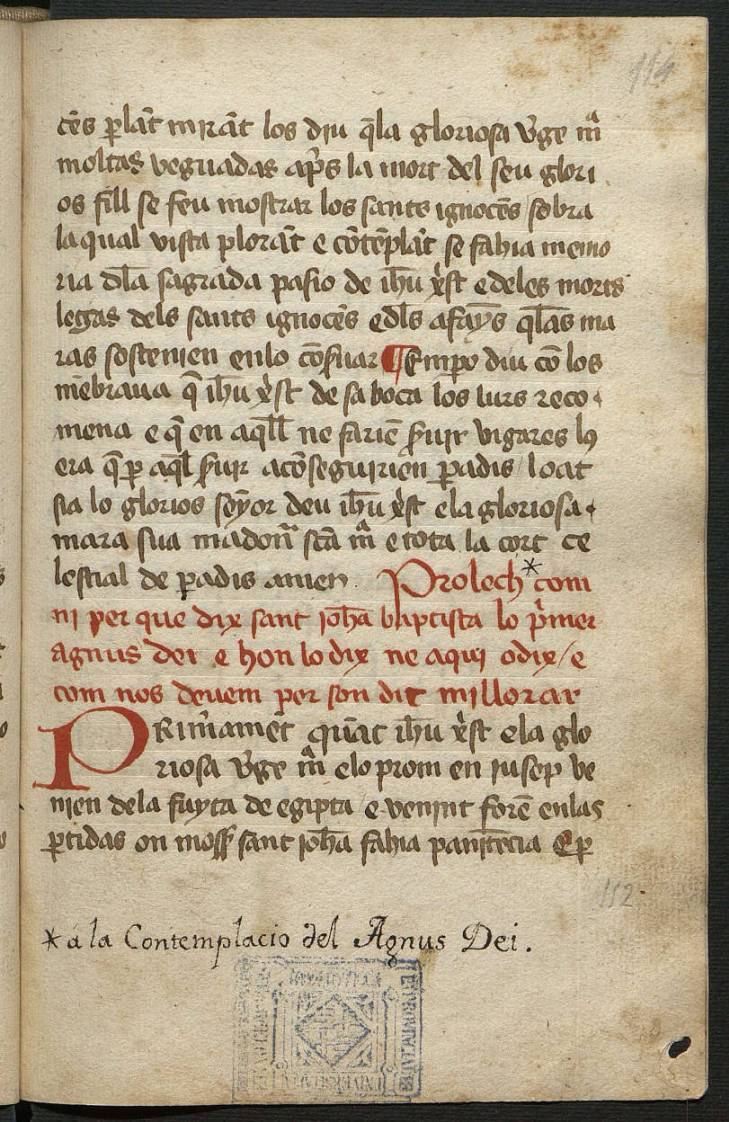 114
cēs p̱lāt mirāt los diu q̄la gloriosa v̄ge mª
moltas veguadas ap̄s la mort del seu glori
os fill se feu mostrar los sants ignocēs / sobra
la qual vista plorāt e cōtēplāt se fahia memo
ria dl̄a sagrada pasio de ih̄u xp̄st e deles morts
legas dels sants ignocēs e dl̄s afayn̄s ql̄as ma
ras sostenien en lo cōseruar ¶ Empo diu cō los
mēbraua q̄ ih̄u xp̄st de sa boca los lurs reco
mena e q̄ en aq̄ll ne fariē s̄uir vigares ly
era q̄ p̱ aq̄l s̄uir acōseguirien p̱adis / loat
sia lo glorios seyor deu ih̄u xp̄st e la gloriosa
mara sua madonª scā mª e tota la cort ce
lestial de p̱adis amen. Prolech * com
ni per que dix sant joh̄a baptista lo p̄mer
agnus dei e hon lo dix ne aqui o dix / e
com nos deuem per son dit millorar
PRim̄amēt quāt ih̄u xp̄st e la glo
riosa v̄ge mª e lo prom en iusep ve
nien de la fuyta de egipta / e venint forē en las
p̱tidas on moss̄ sant joh̄a fahia panitēcia E p̱
112.
* a la Contemplacio del Agnus Dei.